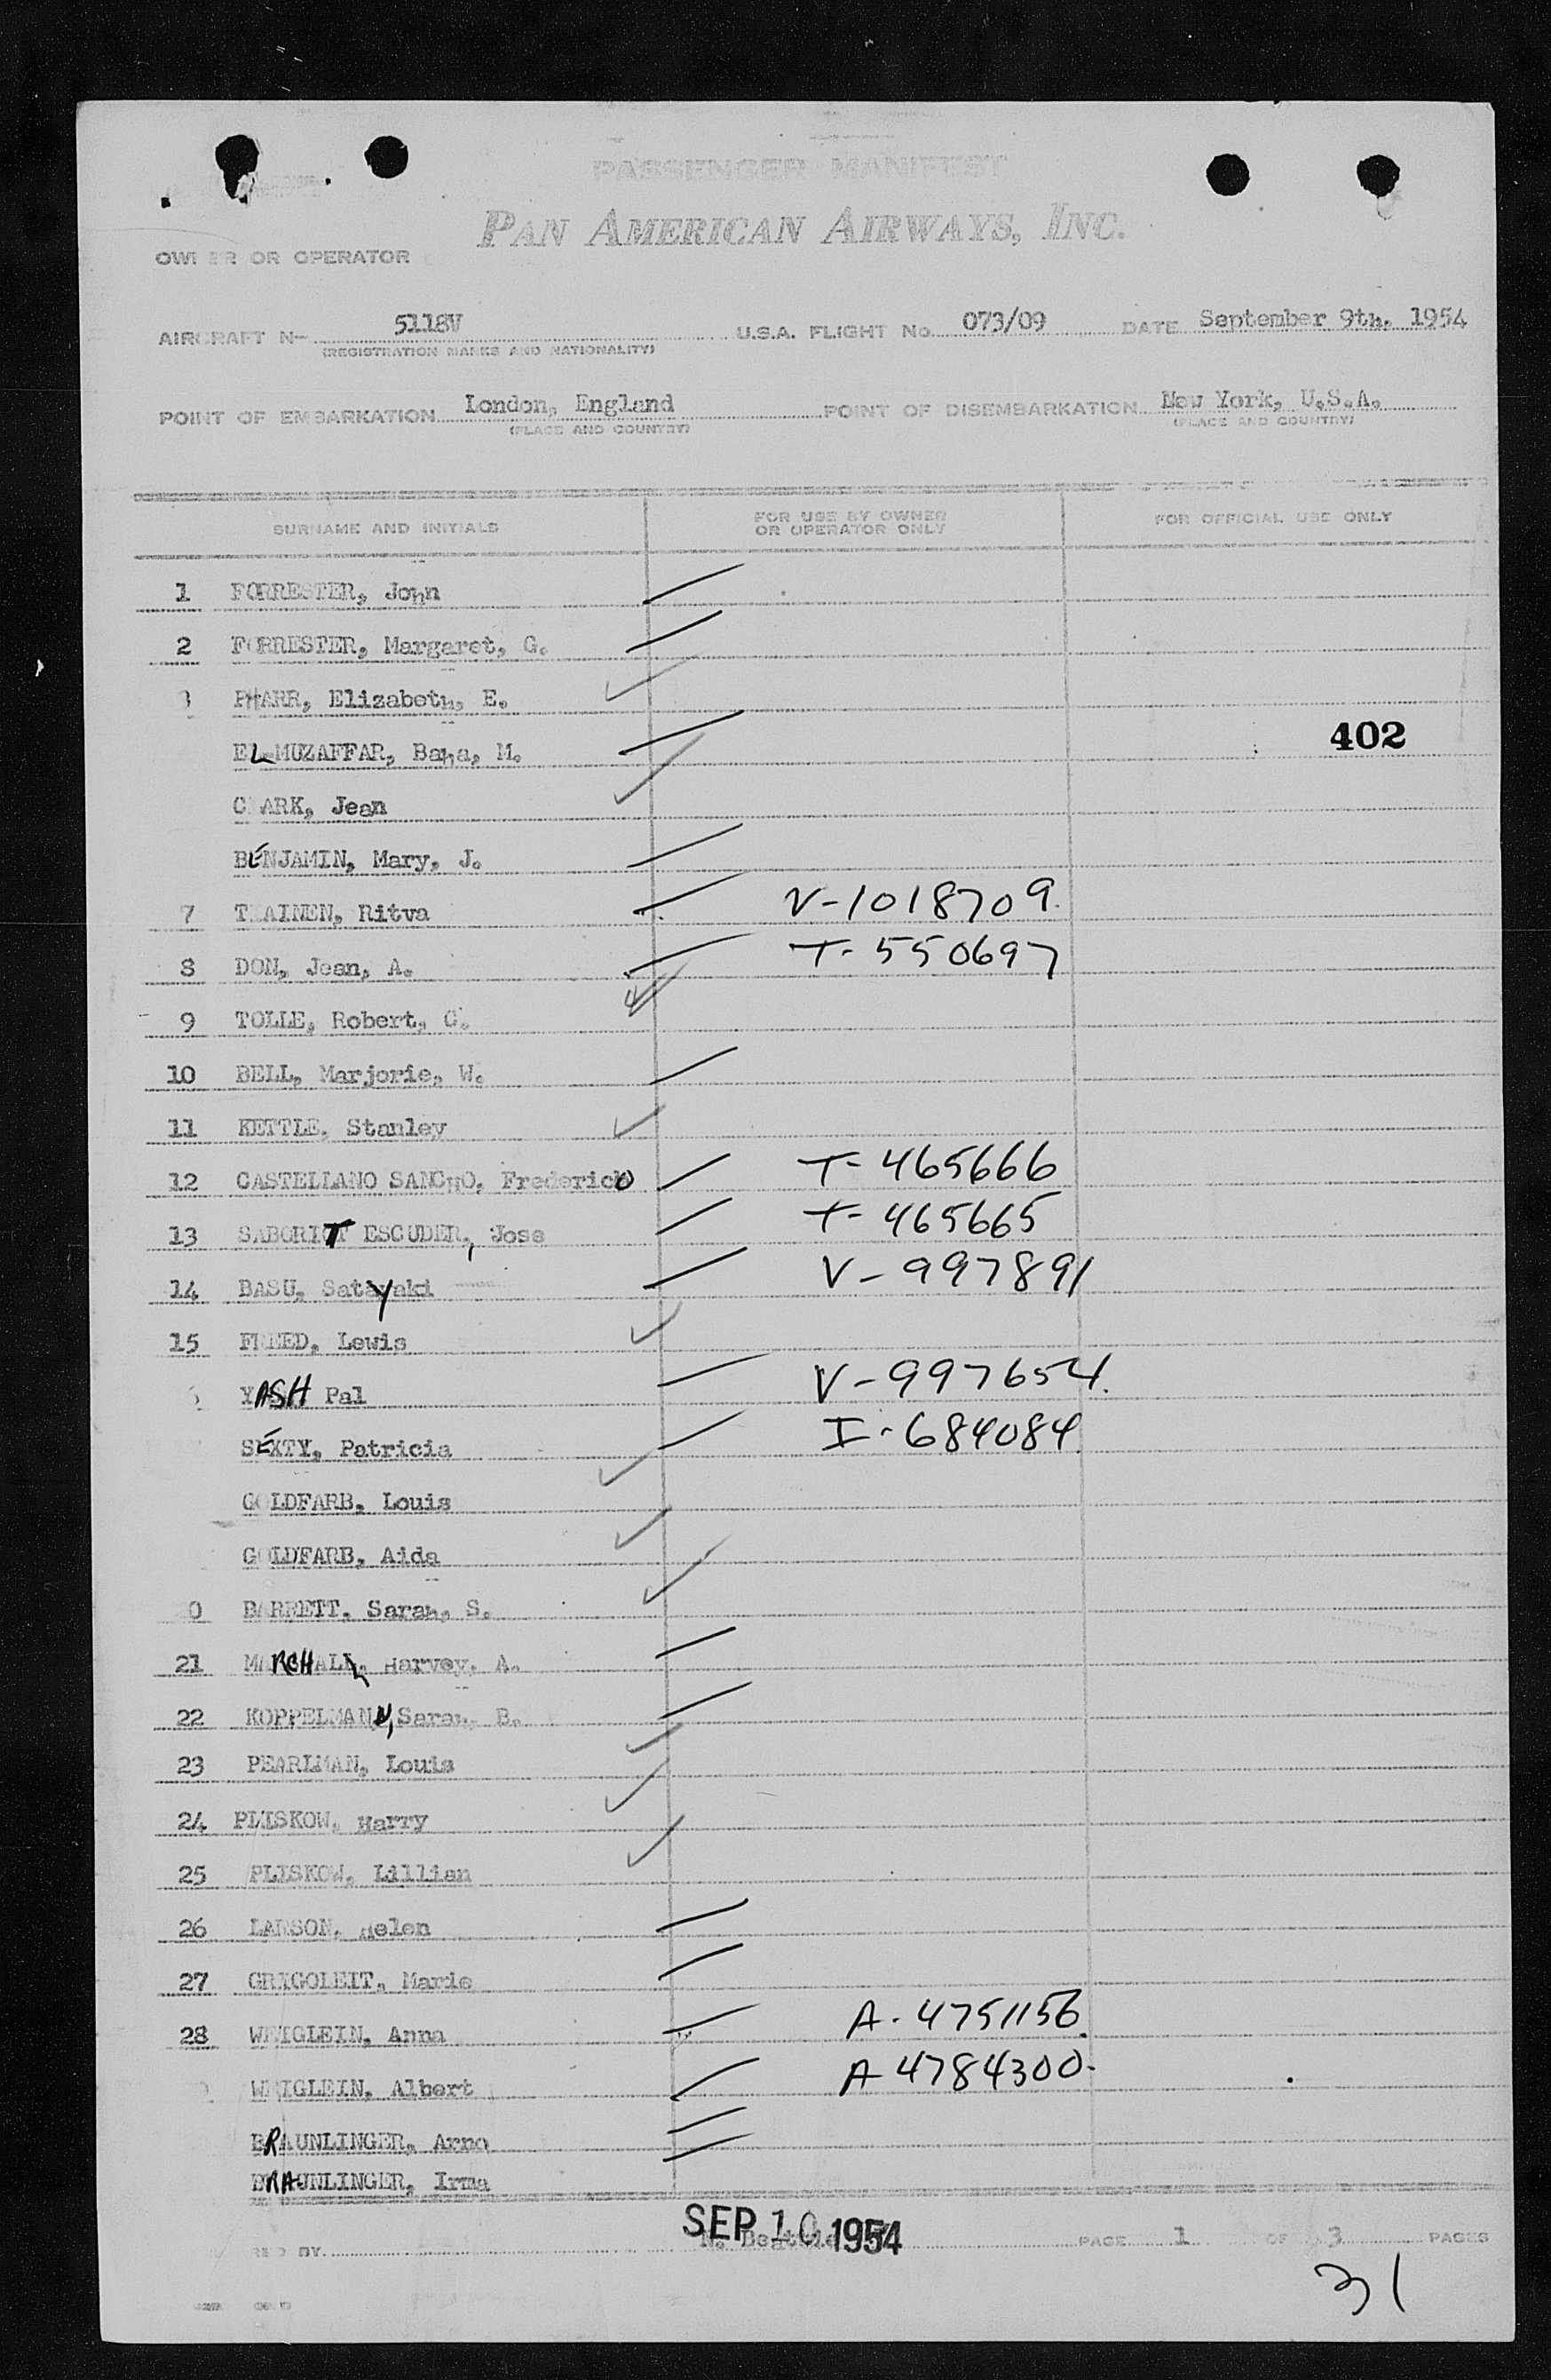 PASSENGER MANIFEST
PAN AMERICAN AIRWAYS, INC.
OWNER OR OPERATOR
AIRCRAFT N- 5118V U.S.A. FLIGHT No. 073/09 DATE September 9th. 1954
(REGISTRATION MARKS AND NATIONALITY)
POINT OF EMBARKATION London, England POINT OF DISEMBARKATION New York, U.S.A.
(PLACE AND COUNTRY) (PLACE AND COUNTRY)
SURNAME AND INITIALS FOR USE BY OWNER OR OPERATOR ONLY FOR OFFICIAL USE ONLY
1 FORRESTER, John
2 FORRESTER, Margaret, G.
3 PHARR, Elizabeth, E.
EL-MUZAFFAR, Baha, M. 402
CLARK, Jean
BENJAMIN, Mary, J.
7 Ritva V-1018709.
8 DON, Jean, A. T-550697
9 TOLLE, Robert, C.
10 BELL, Marjorie, W.
11 KETTLE, Stanley
12 CASTELLANO SANCHO, Frederico T-465666
13 SABORIT ESCUDER, Jose T-465665
14 BASU, Satyaki V-997891
15 FREED, Lewis
YASH Pal V-997654.
SEXTY, Patricia I-684084
GOLDFARB, Louis
GOLDFARB, Aida
0 BARRETT, Sarah, S.
21 Harvey, A.
22 KOPPELMAN, Sarah B.
23 PEARLMAN, Louis
24 PLISKOW, Harry
25 PLISKOW, Lillian
26 LARSON, Helen
27 GRIGOLEIT, Marie
28 WEIGLEIN, Anna A-4751156.
WEIGLEIN, Albert A-4784300-
BRAUNLINGER, Arno
BRAUNLINGER, Irma
SEP 10 1954
BY N. Beattie PAGE 1 OF 3 PAGES
31